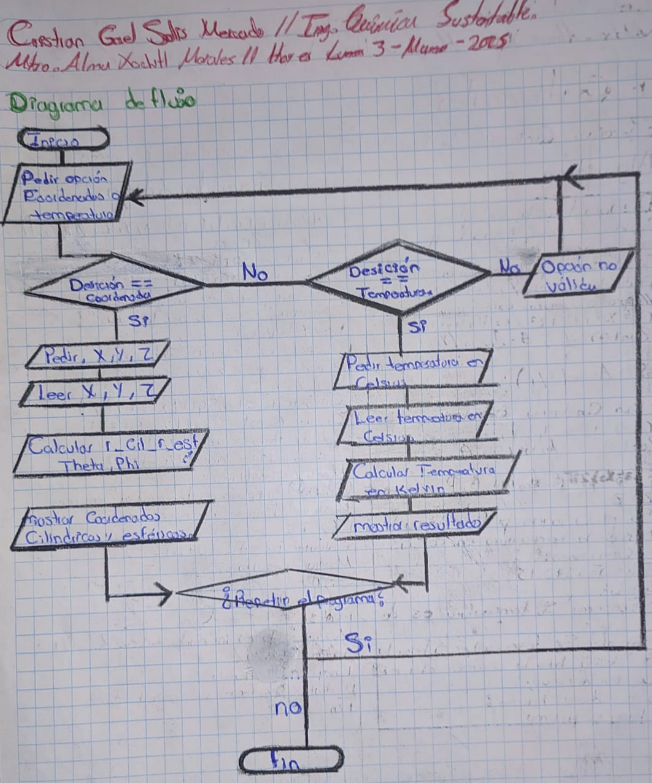 Cristian Gael Solis Mercado // Ing. Química Sustentable.
Mtro. Alma Xochitl Morales // 3 - - 2025
Diagrama de flujo
Inicio
Pedir opción
Coordenadas o
temperatura
Desición ==
Coordenada
No
Desición
==
Temperatura
No
Opción no
válida
Si
Si
Pedir, X, Y, Z
Leer X, Y, Z
Calcular r_Cil_r_esf
Theta, Phi
mostrar Coordenadas
Cilindricas y esféricas
Pedir temperatura en
Celsius
Leer temperatura en
Celsius
Calcular Temperatura
en Kelvin
mostrar resultado
¿Repetir el programa?
Si
no
fin